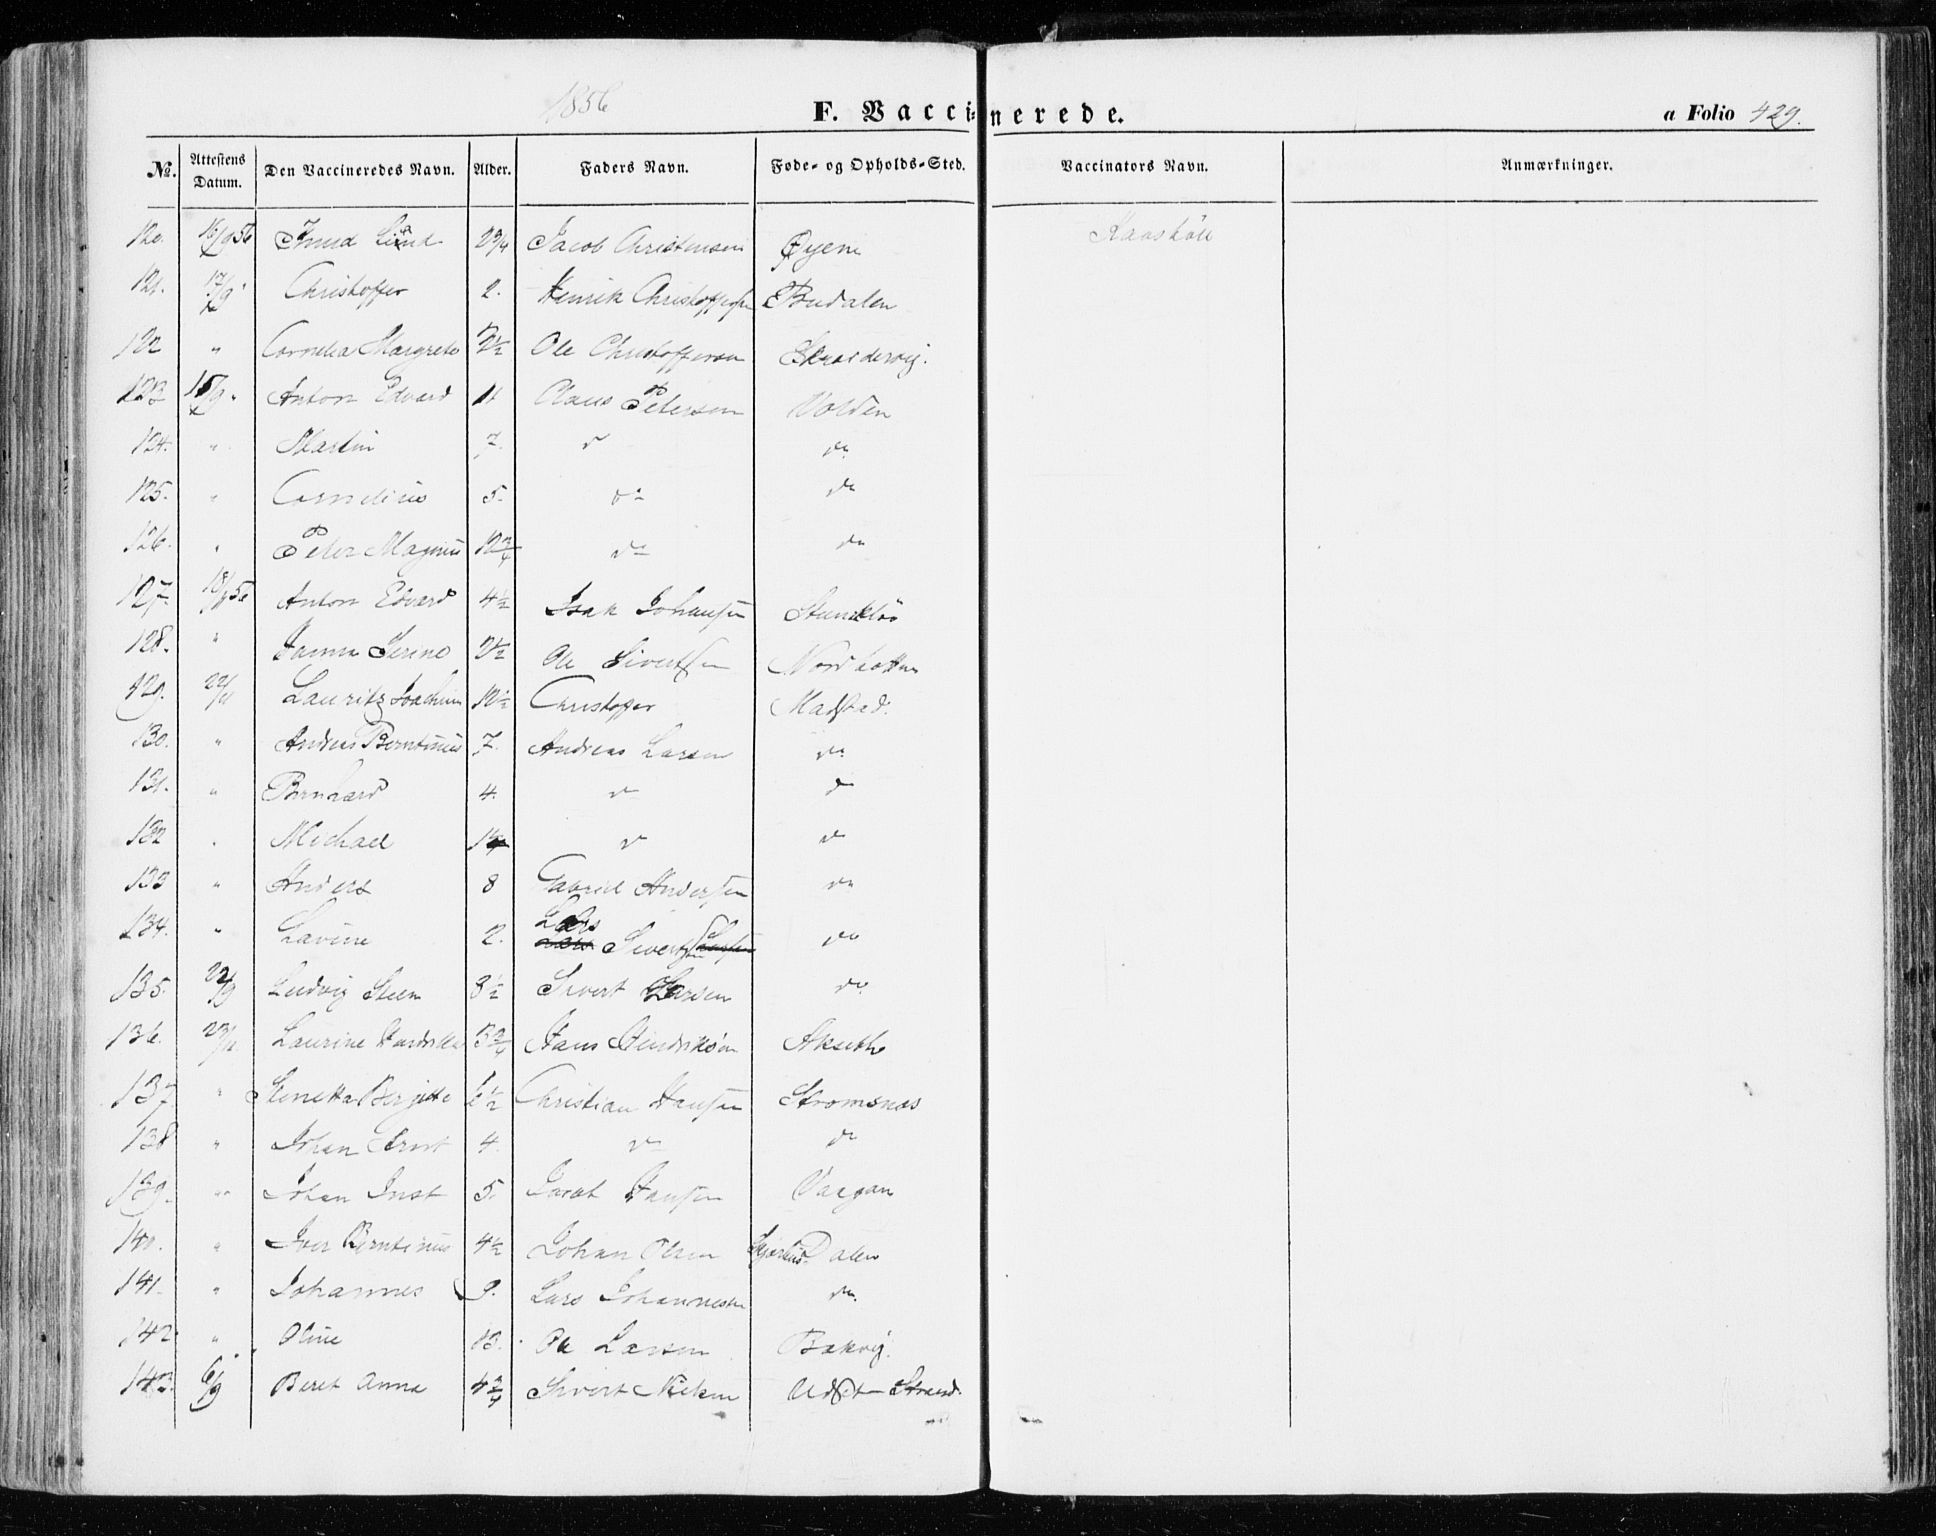 1856
F. Vaccinerede.
a Folio 429.
No. Attestens Datum. Den Vaccineredes Navn. Alder. Faders Navn. Føde- og Opholds-Sted. Vaccinators Navn. Anmærkninger.
120. 16/9 56 2 3/4 Jacob Christensen Øyene
121. 17/9 " Christoffer 2. Henrik Christoffersen Budalen
122 " Cornelia Margrete 2 1/2 Ole Christoffersen
123 15/9 " Anton Edvard 11 Claus Petersen Volden
124. " Martin 7. do do
125. " Cornelius 5. do do
126. " Peter Magnus 10 3/4 do do
127. 56 Anton Edvard 4 1/2 Isak Johansen
128. " Serine 2 1/2 Ole Sivertsen
129. 22/11 Lauritz Joachim 10 1/2 Christoffer Madstad.
130. " Andreas Berntinus 7. Andreas Larsen do
131. " Bernhard 4. do do
132 " Michael do do
133 " Anders 8 Gabriel Andersen do
134. " Lavine 2. Lars Sivertsen do
135. 22/9 Ludvig Steen 8 1/2 Sivert Larsen do
136. 23/11 Laurine 3 3/4 Hans Hendriksen
137. " Bergitte 6 1/2 Christian Hansen Stromsnæs
138 " Johan Ernst 4. do do
139. " Johan 5. Hansen Vaagan
140. " Iver Berntinus 4 1/2 Johan Olsen Dalen
141. " Johannes 9. Lars Johannesen do
142. " Oline 13. Ole Larsen Bakvig.
143. 6/9 Beret Anna 4 3/4 Sivert Nielsen Strand.